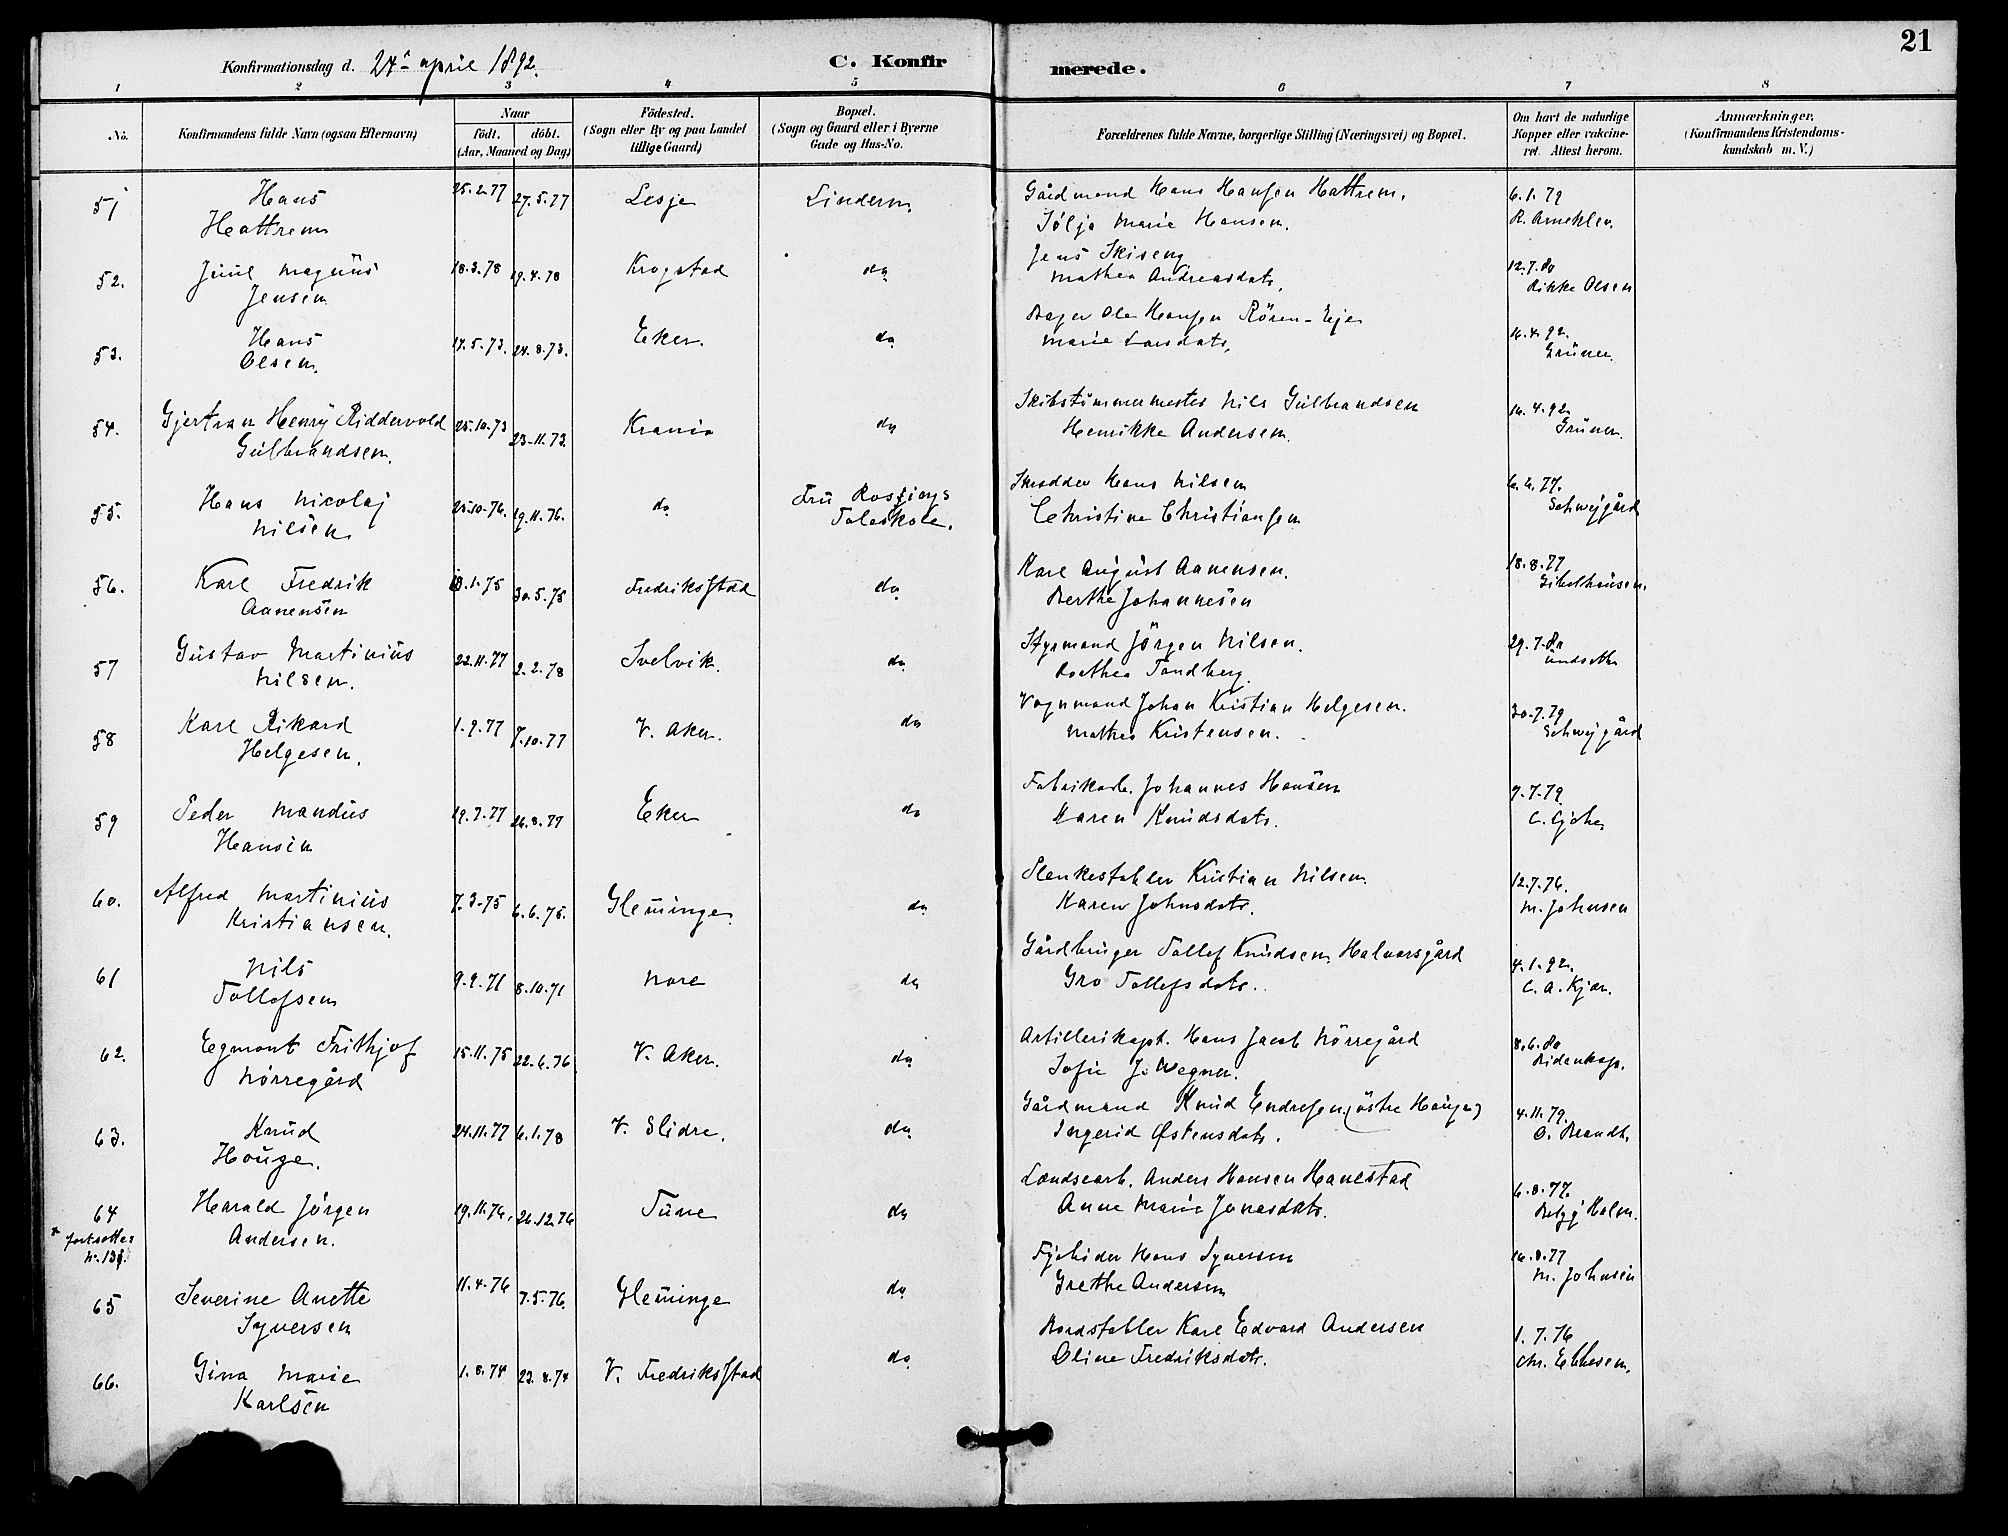 21
Konfirmationsdag d. 24de april 1892. C. Konfirmerede.
1 2 3 4 5 6 7 8
No. Konfirmandens fulde Navn (ogsaa Efternavn) Naar födt. döbt. (Aar, Maaned og Dag) Födested. (Sogn eller By og paa Landet tillige Gaard) Bopæl. (Sogn og Gaard eller i Byerne Gade og Hus-No. Forældrenes fulde Navne, borgerlige Stilling (Næringsvei) og Bopæl. Om havt de naturlige Kopper eller vakcineret. Attest herom. Anmærkninger. (Konfirmandens Kristendomskundskab m. V.)
51 Hans 25.2.77 27.5.77 Lesje Lindern Gårdmand Hans Hansen Hattrem. 6.1.79
Hattrem Marie Hansen.
52. Juul Magnus 18.3.78 19.4.78 Krogstad do Jens Skiseng 12.7.80
Jensen Mathea Andreasdatr. Rikke Olsen
53. Hans 17.5.73. 24.8.73. Eker. do Ole Hansen Rören-Eje 16.4.92.
Olsen. Marie Larsdatr. Grüner.
54. Gjertran Henry Riddervold 25.10.73 23.11.73. Krania do Skibstimmermester Nils Gulbrandsen 16.4.92
Gulbrandsen. Henrikke Andersen. Grüner.
55. Hans Nicolaj 25.10.76. 19.11.76. do Fru Rosjings Skrædder Hans Nilsen 6.6.77.
Nilsen Taleskole. Christine Christiansen Schweigård
56. Karl Fredrik 18.1.75 30.5.75 Fredriksstad do Karl August Aanensen. 18.8.77
Aanensen Berthe Johannesen Gibelhausen.
57 Gustav Martinius 22.11.77 2.2.78 Svelvik. do Styrmand Jörgen Nilsen. 29.7.80
Nilsen. Dorthea Tandberg.
58 Karl Rikard 1.9.77 7.10.77 V. Aker. do Vognmand Johan Kristian Helgesen. 30.7.79
Helgesen. Mathea Kristensen. Schweigård
59 Peder Mandius 19.7.77 26.8.77 Eker do Fabrikarb. Johannes Hansen 7.7.79
Hansen Karen Knudsdatr.
60. Alfred Martinius 7.3.75 6.6.75. Glemminge. do Plankestabler Kristian Nilsen. 12.7.76.
Kristiansen. Karen Johnsdatr. M. Johnsen
61 Nils 9.9.71 8.10.71 Nore do Gårdbruger Tollef Knudsen Halvorsgård 4.1.92.
Tollefsen Gro Tollefsdatr. C. A. Kjær.
62. Egmont Frithjof 15.11.75 22.6.76 V. Aker. do Artillerikapt. Hans Jacob Nörregård 8.6.80
Nörregård Sofie J. Wegner.
63. Knud 24.11.77 6.1.78 V. Slidre. do Gårdmand Knud Endresen (östre Hauge) 4.11.79.
Hauge. Ingerid Østensdatr. O. Brandt.
64 Harald Jörgen 19.11.76. 26.12.76 Tune do Landsearb. Anders Hansen Hanestad 6.8.77.
fortsættes No. 131. Andersen. Anne Marie Jonasdatr. Holm.
65 Severine Anette 11.4.76 7.5.76. Glemminge do Hans Syversen 16.8.77
Syversen Grethe Andersen M. Johnsen
66. Gina Marie 1.8.74 23.8.74 V. Fredriksstad do Bordstabler Karl Edvard Andersen 1.7.76
Karlsen Oline Fredriksdatr. Chr. Ebbesen.